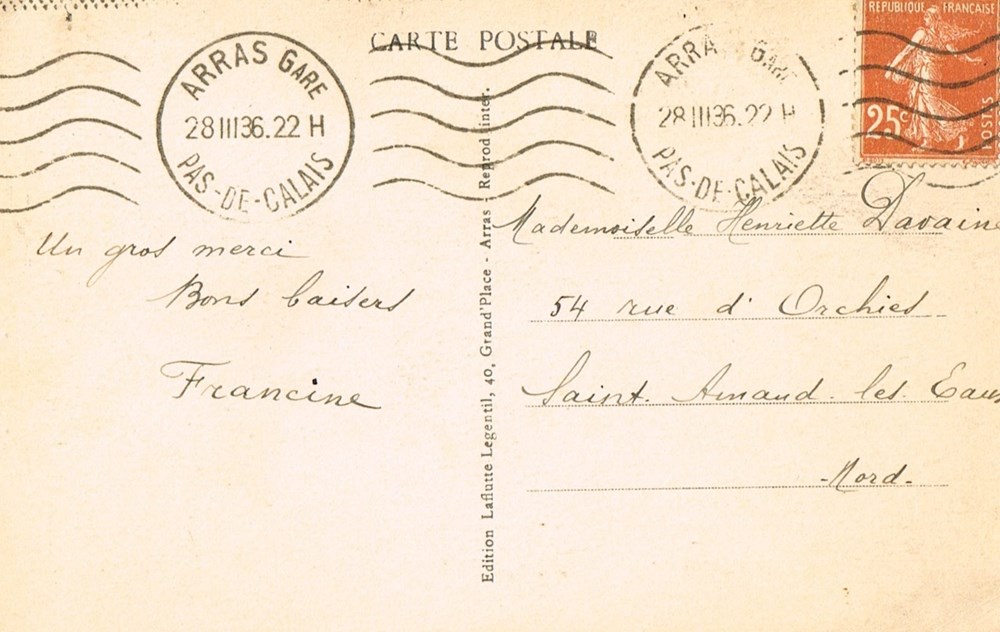 CARTE POSTALE
ARRAS GARE
28 III 36. 22 H
PAS-DE-CALAIS
ARRA GARE
28 III 36. 22 H
PAS-DE-CALAIS
REPUBLIQUE FRANÇAISE
25c
POSTES
Un gros merci
Bons baisers
Francine
Edition Laflutte Legentil, 40, Grand'Place - Arras - Reprod inter.
Mademoiselle Henriette Davaine
54 rue d' Orchies
Saint. Amand. les. Eaux
-Nord-